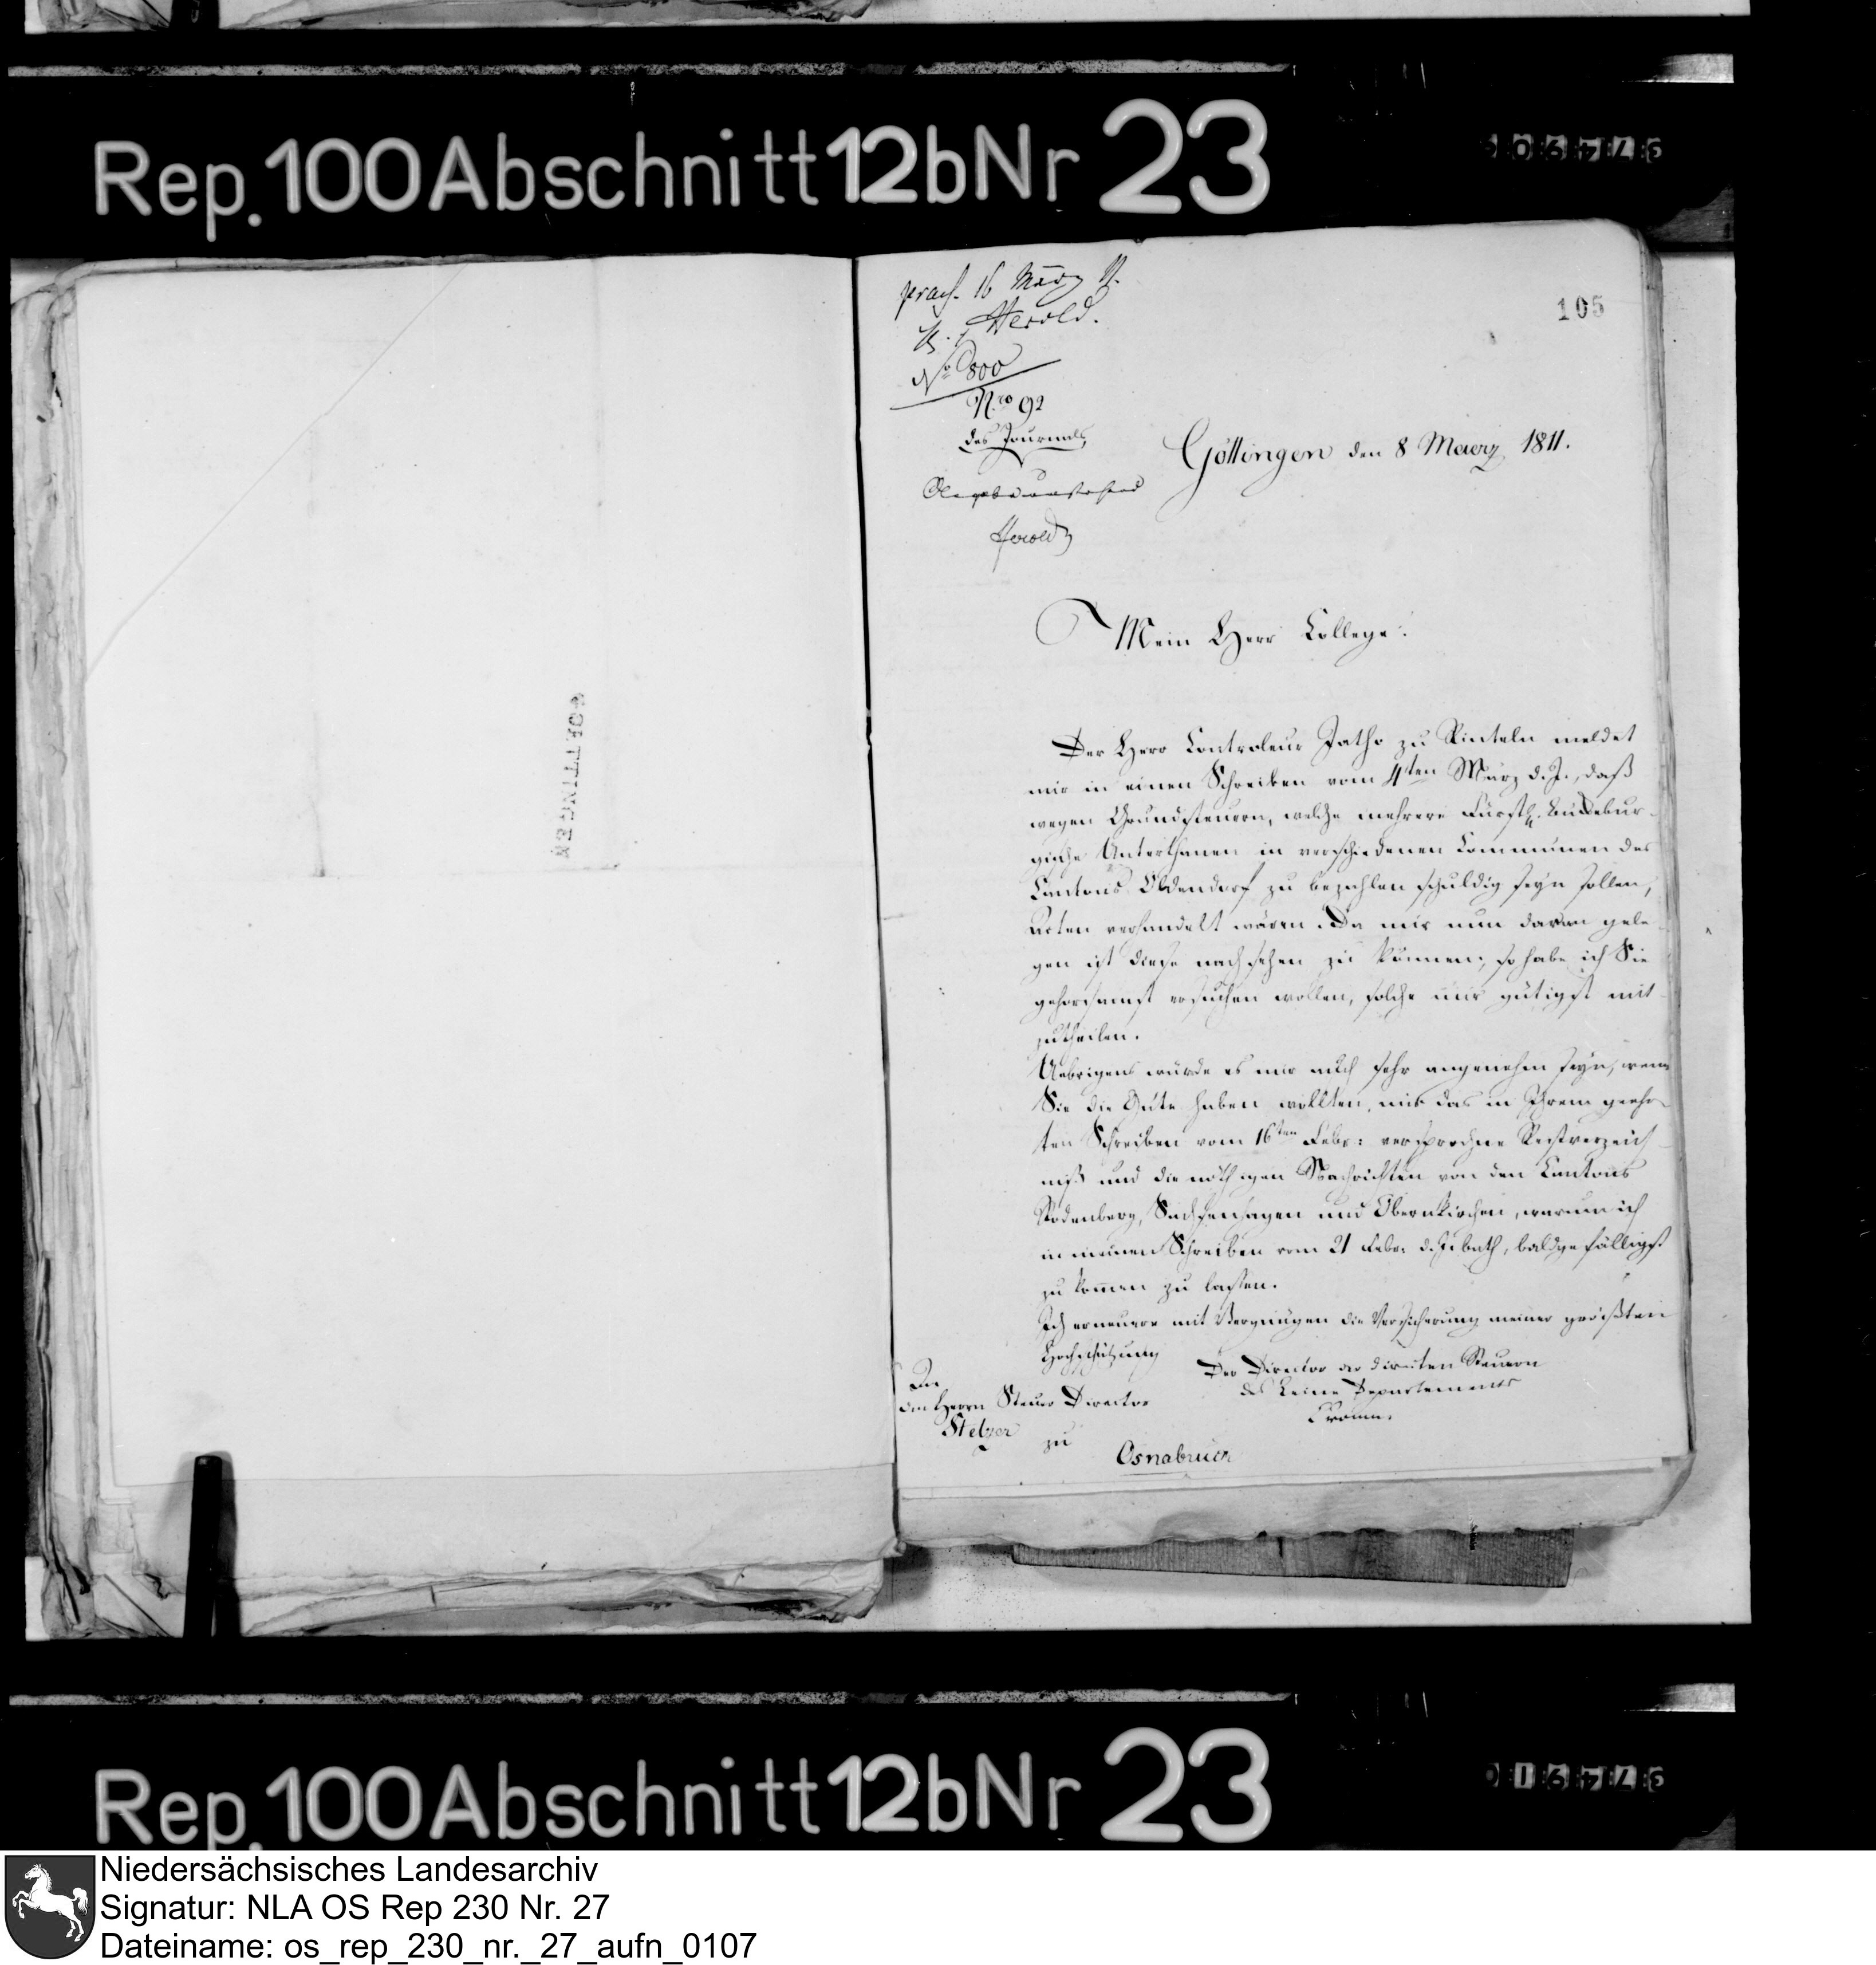 Rep. 100 Abschnitt 12b Nr 23
GOETTINGEN
praes. 16 März 11.
Herold.
No 800
Nro 92
des Journals
Herold
105
Göttingen den 8 Maerz 1811.
Mein Herr College!
Der Herr Controleur Jatho zu Rinteln meldet
mir in einen Schreiben vom 4ten März d. J., daß
wegen Grundsteuern, welche mehrere Fürstl. Bückebur-
gische Unterthanen in verschiedenen Communen des
Cantons Oldendorf zu bezahlen schuldig seyn sollen,
Acten verhandelt wären. Da mir nun daran gele-
gen ist diese nachsehen zu können; so habe ich Sie
gehorsamst ersuchen wollen, solche mir gütigst mit-
zutheilen.
Uebrigens würde es mir auch sehr angenehm seyn, wenn
Sie die Güte haben wollten, mir das in Ihrem geehr-
ten Schreiben vom 16ten Febr: versprochne Restverzeich-
niß und die nöthigen Nachrichten von den Cantons
Rodenberg, Sachsenhagen und Obernkirchen, warum ich
in meinen Schreiben vom 21 Febr: d. J. bath, baldgefälligst
zukommen zu lassen.
Ich erneuere mit Vergnügen die Versicherung meiner größten
Hochschätzung
Der Director der directen Steuern
des Leine Departements
An
den Herrn Steuer Director
Stelzer
zu
Osnabrück
Rep. 100 Abschnitt 12b Nr 23
Niedersächsisches Landesarchiv
Signatur: NLA OS Rep 230 Nr. 27
Dateiname: os_rep_230_nr._27_aufn_0107